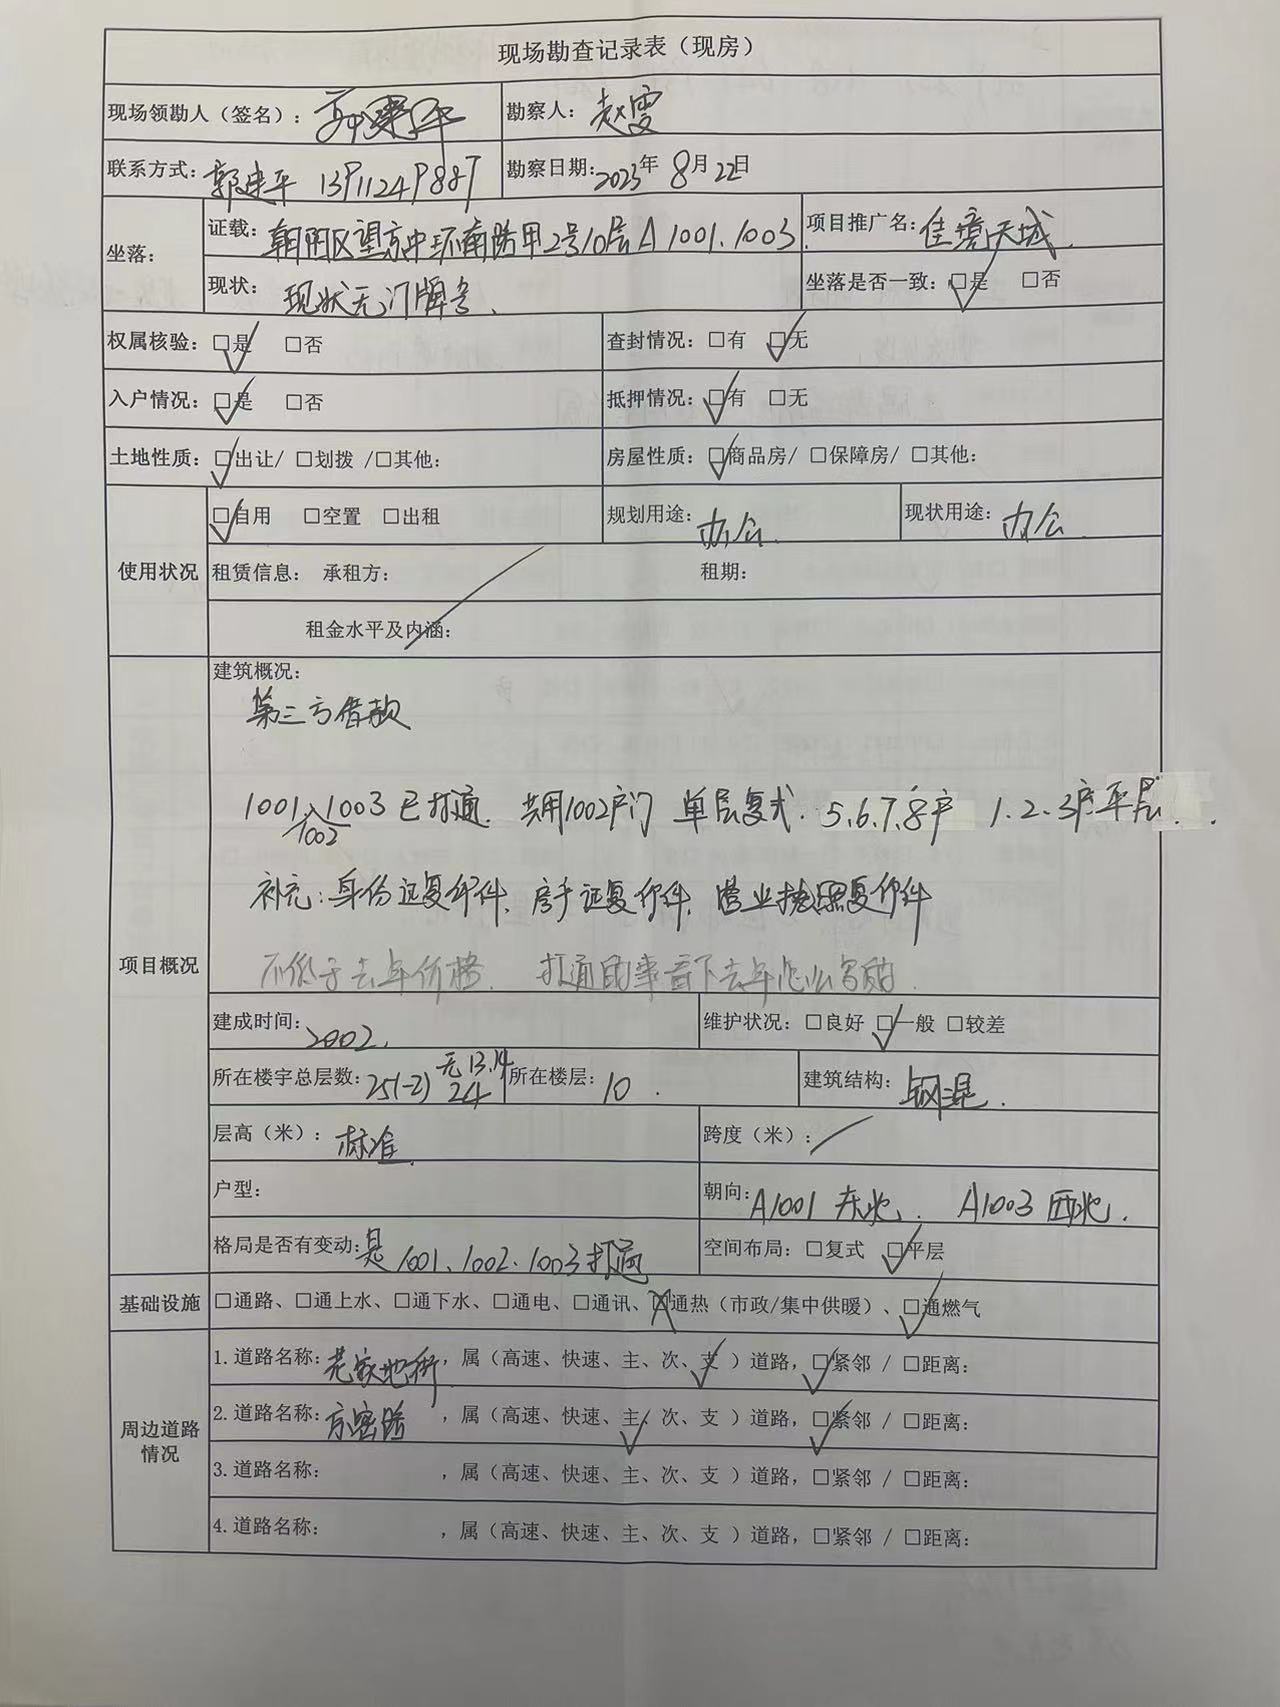 现场勘查记录表（现房）
现场领勘人（签名）： 勘察人：赵雯
联系方式：郭建平 13911249887 勘察日期：2023年8月22日
坐落： 证载：朝阳区望京中环南路甲2号10层A1001.1003 项目推广名：佳境天城
现状：现状无门牌号、 坐落是否一致：☑是 □否
权属核验：☑是 □否 查封情况：□有 ☑无
入户情况：☑是 □否 抵押情况：☑有 □无
土地性质：☑出让/ □划拨 /□其他： 房屋性质：☑商品房/ □保障房/ □其他：
使用状况 ☑自用 □空置 □出租 规划用途：办公 现状用途：办公
租赁信息： 承租方： 租期：
租金水平及内涵：
项目概况 建筑概况：
第三方借款
1001、1003已打通. 共用1002户门 单层复式. 5.6.7.8户 1.2.3户平层.
1002
补充：身份证复印件、房产证复印件、营业执照复印件
不低于去年价格. 打通的事看下去年怎么写的.
建成时间：2002. 维护状况：□良好 ☑一般 □较差
所在楼宇总层数：25(-2) 无13.14 24 所在楼层：10 . 建筑结构：钢混.
层高（米）：标准 跨度（米）：
户型： 朝向：A1001 东北. A1003 西北.
格局是否有变动：是 1001、1002.1003打通 空间布局：□复式 ☑平层
基础设施 □通路、□通上水、□通下水、□通电、□通讯、☒通热（市政/集中供暖）、☑通燃气
周边道路情况 1.道路名称： ，属（高速、快速、主、次、支✓）道路，☑紧邻 / □距离：
2.道路名称： ，属（高速、快速、主✓、次、支 ）道路，☑紧邻 / □距离：
3.道路名称： ，属（高速、快速、主、次、支 ）道路，□紧邻 / □距离：
4.道路名称： ，属（高速、快速、主、次、支 ）道路，□紧邻 / □距离：